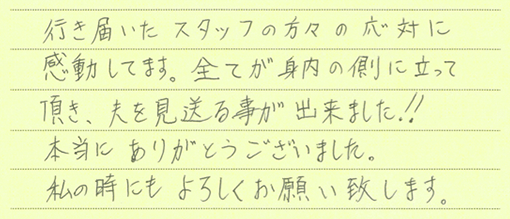 行き届いた スタッフの方々の 応対に
感動してます。全てが身内の側に立って
頂き、夫を見送る事が出来ました!!
本当に ありがとうございました。
私の時にも よろしくお願い致します。